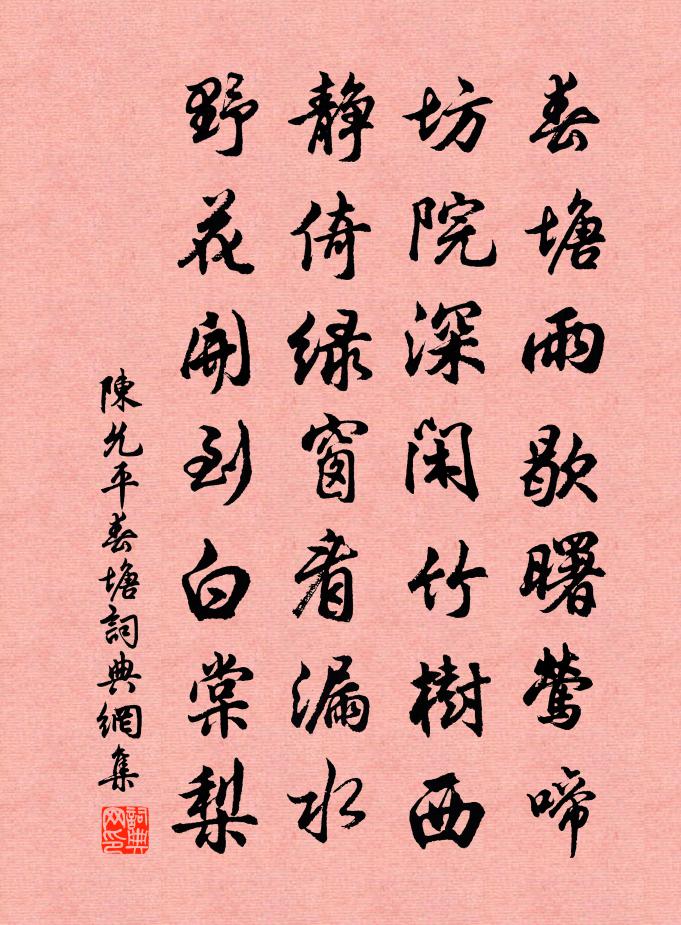 春塘雨歇曙鶯啼
坊院深閑竹樹西
静倚緑窗看漏水
野花開到白棠梨
陳允平春塘詞典網集
詞典网印